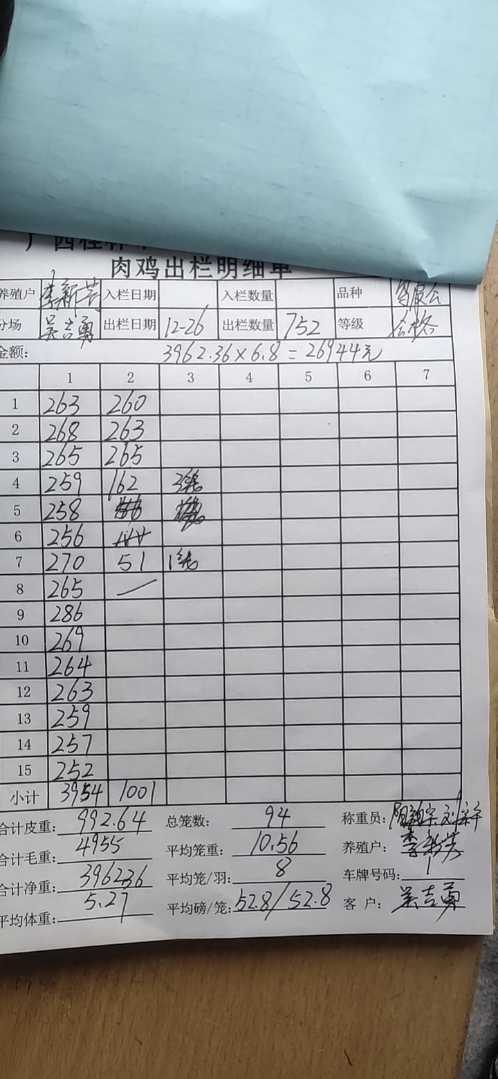 肉鸡出栏明细单
养殖户 李新芳 入栏日期 入栏数量 品种
分场 吴吉勇 出栏日期 12-26 出栏数量 752 等级 合格
金额: 3962.36×6.8=26944元
1 2 3 4 5 6 7
1 263 260
2 268 263
3 265 265
4 259 162 3笼
5 258
6 256
7 270 51 1笼
8 265
9 286
10 269
11 264
12 263
13 259
14 257
15 252
小计 3954 1001
合计皮重: 992.64 总笼数: 94 称重员:
合计毛重: 4955 平均笼重: 10.56 养殖户: 李新芳
合计净重: 3962.36 平均笼/羽: 8 车牌号码: 1
平均体重: 5.27 平均磅/笼: 52.8/52.8 客户: 吴吉勇